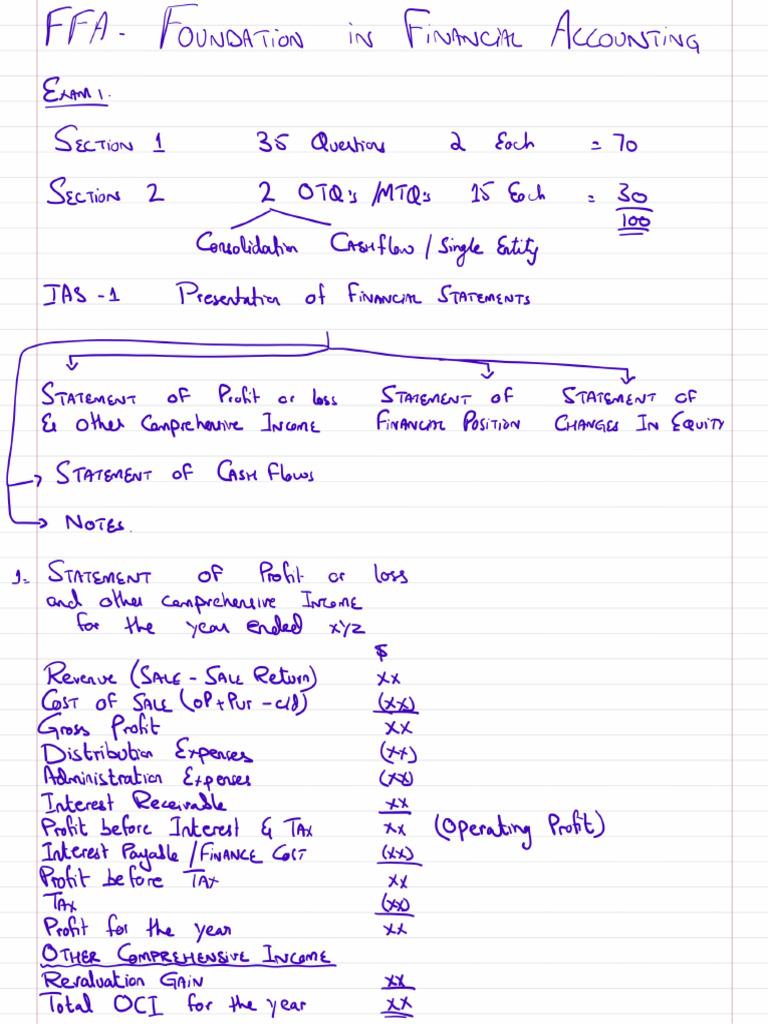 FFA - FOUNDATION IN FINANCIAL ACCOUNTING
EXAM 1.
SECTION 1 35 Questions 2 Each = 70
SECTION 2 2 OTQ's /MTQ's 15 Each = 30
100
Consolidation CASHflow / Single Entity
IAS -1 Presentation of FINANCIAL STATEMENTS
STATEMENT OF Profit or loss STATEMENT OF STATEMENT OF
& Other Comprehensive INCOME FINANCIAL POSITION CHANGES IN EQUITY
STATEMENT OF CASH flows
NOTES.
1- STATEMENT OF Profit or loss
and other comprehensive INCOME
for the year ended XYZ
$
Revenue (SALE - SALE Return) XX
COST OF SALE (OP + Pur - c/d) (XX)
Gross Profit XX
Distribution Expenses (XX)
Administration Expenses (XX)
Interest Receivable XX
Profit before Interest & TAX XX (Operating Profit)
Interest Payable / FINANCE COST (XX)
Profit before TAX XX
TAX (XX)
Profit for the year XX
OTHER COMPREHENSIVE INCOME
Revaluation GAIN XX
Total OCI for the year XX